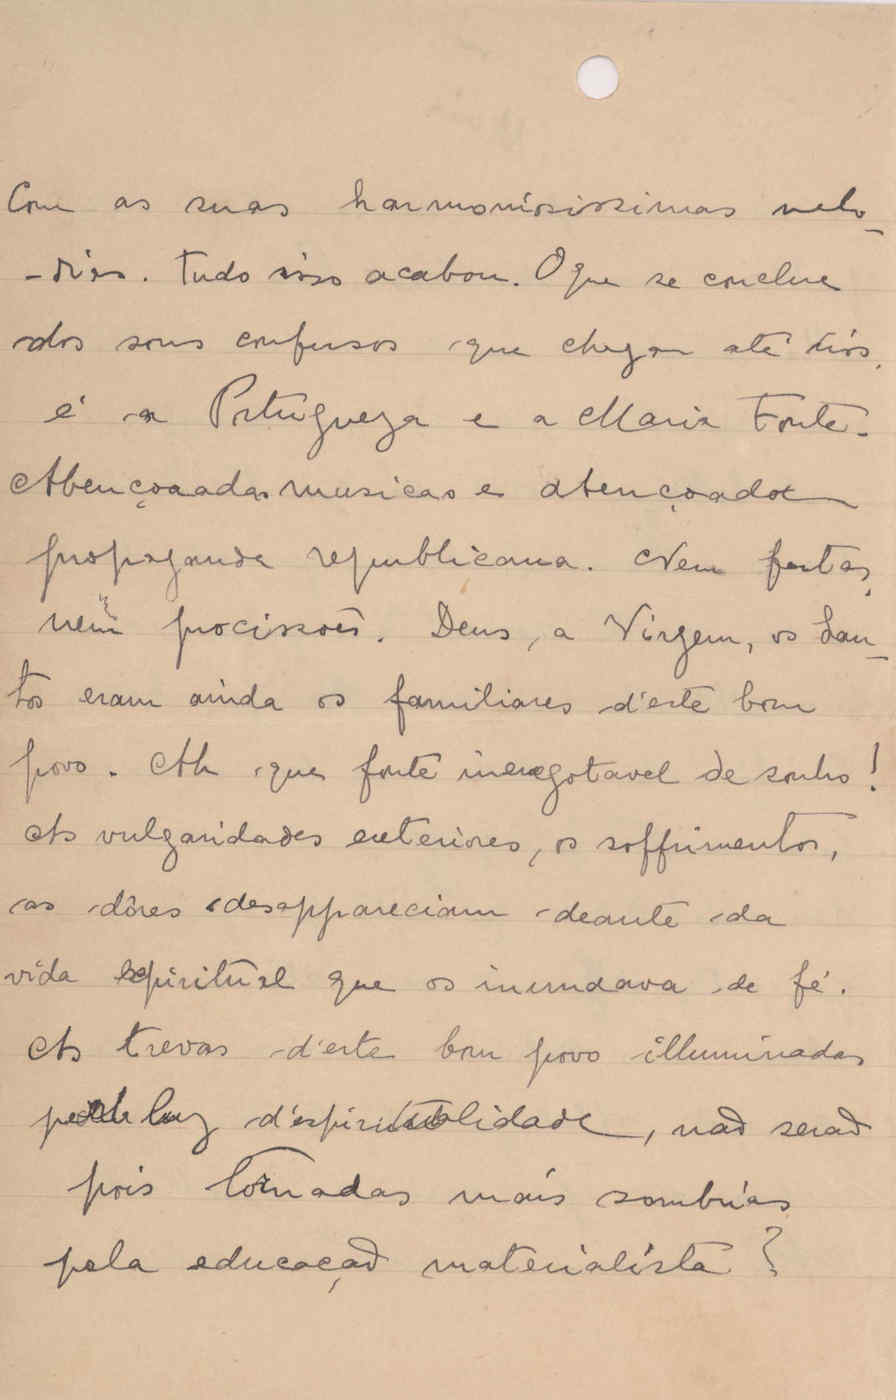 Com as suas harmoniosissimas melo-
-dias. Tudo isso acabou. O que se conclue
dos sons confusos que chegam até nós,
é a Portugueza e a Maria Fonte.
Abençoadas musicas e abençoada
propaganda republicana. Nem festas,
nem procissões. Deus, a Virgem, os San-
tos eram ainda os familiares d'este bom
povo. Ah que fonte inexgotavel de sonho!
As vulgaridades exteriores, os soffrimentos,
as dôres desappareciam deante da
vida espiritual que os inundava de fé.
As trevas d'este bom povo illuminadas
pela luz d'espiritualidade, não serão
pois tornadas mais sombrias
pela educação materialista?